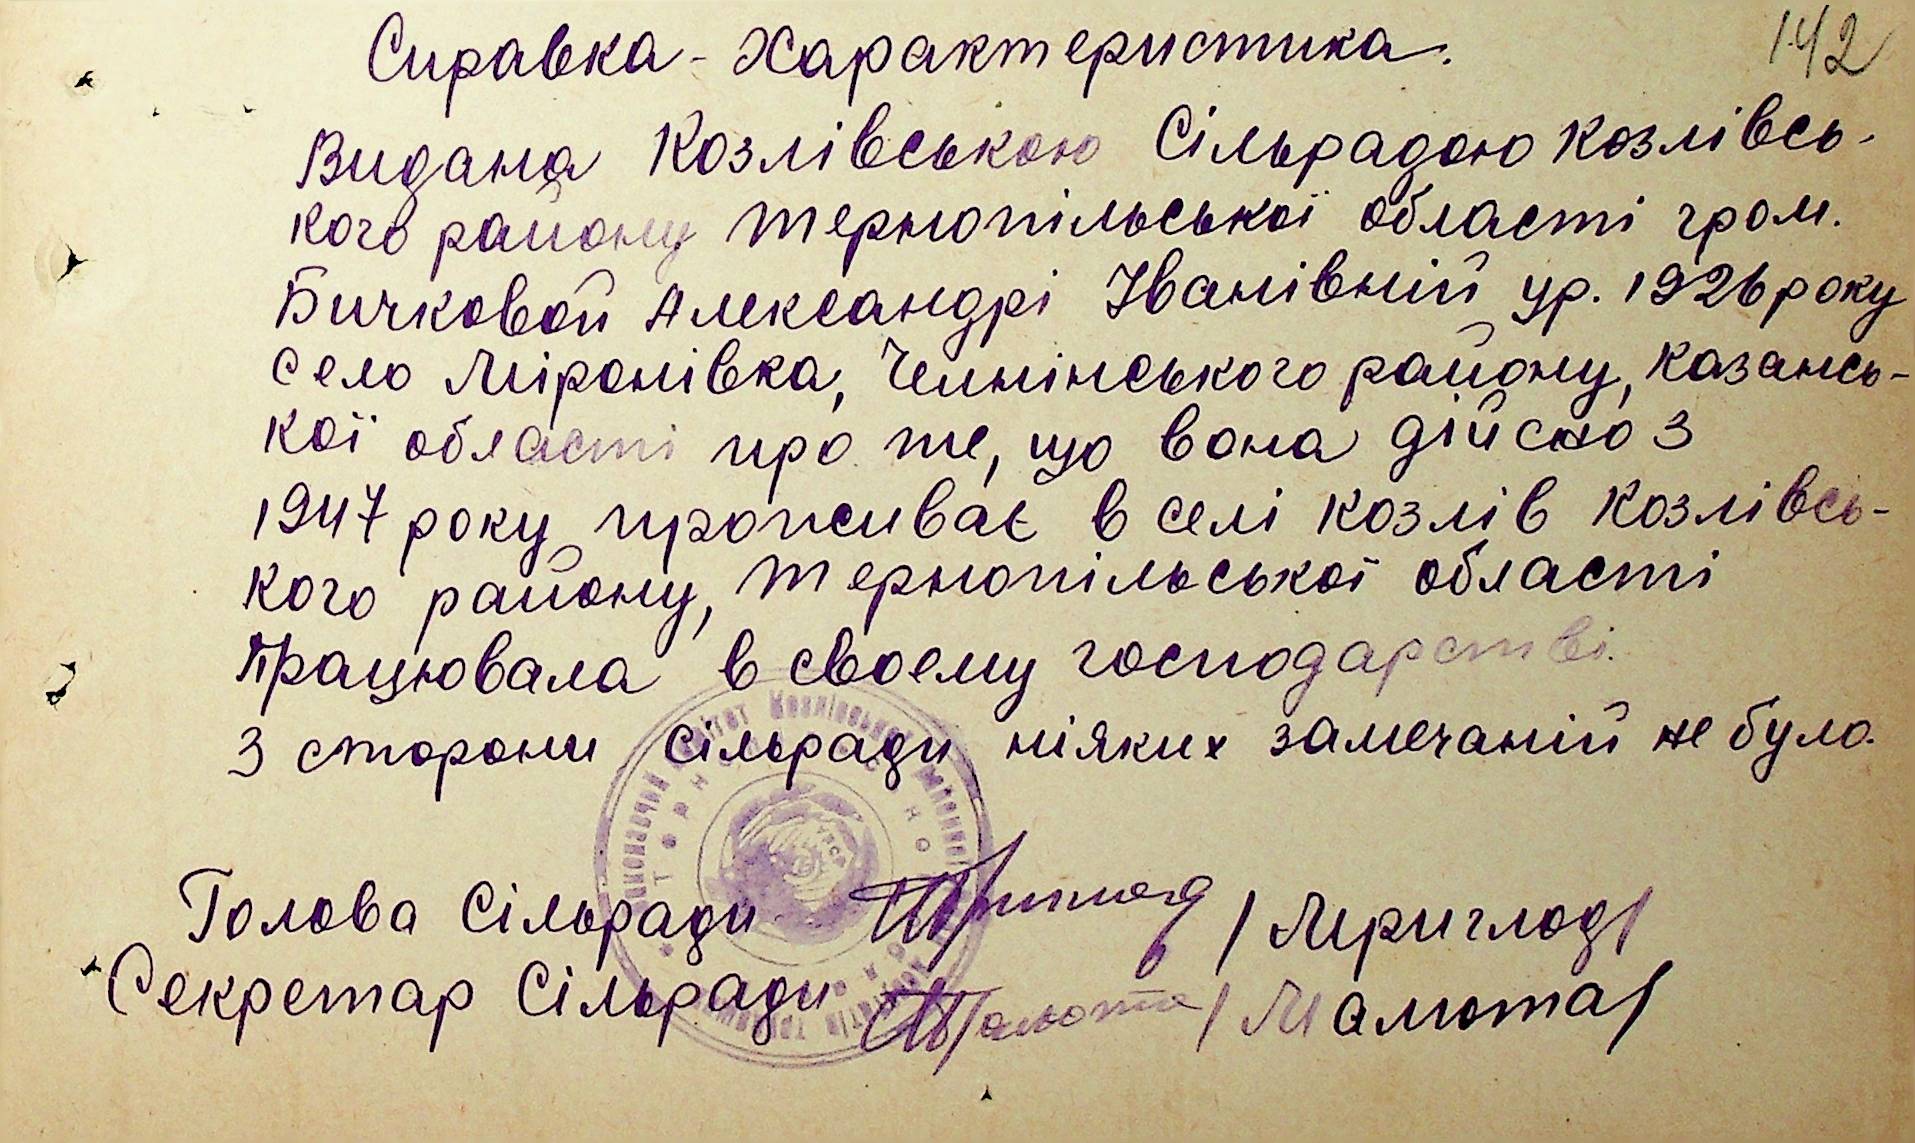 142
Справка - Характеристика.
Видана Козлівською Сільрадою Козлівсь-
кого району Тернопільської області гром.
Бичковой Александрі Іванівній ур. 1926 року
село Міронівка, Челнінського району, Казансь-
кої області про те, що вона дійсно з
1947 року проживає в селі Козлів Козлівсь-
кого району, Тернопільської області
Працювала в своему господарстві.
З сторони сільради ніяких замечаній не було.
Голова Сільради /Мриглод/
Секретар Сільради /Малюта/